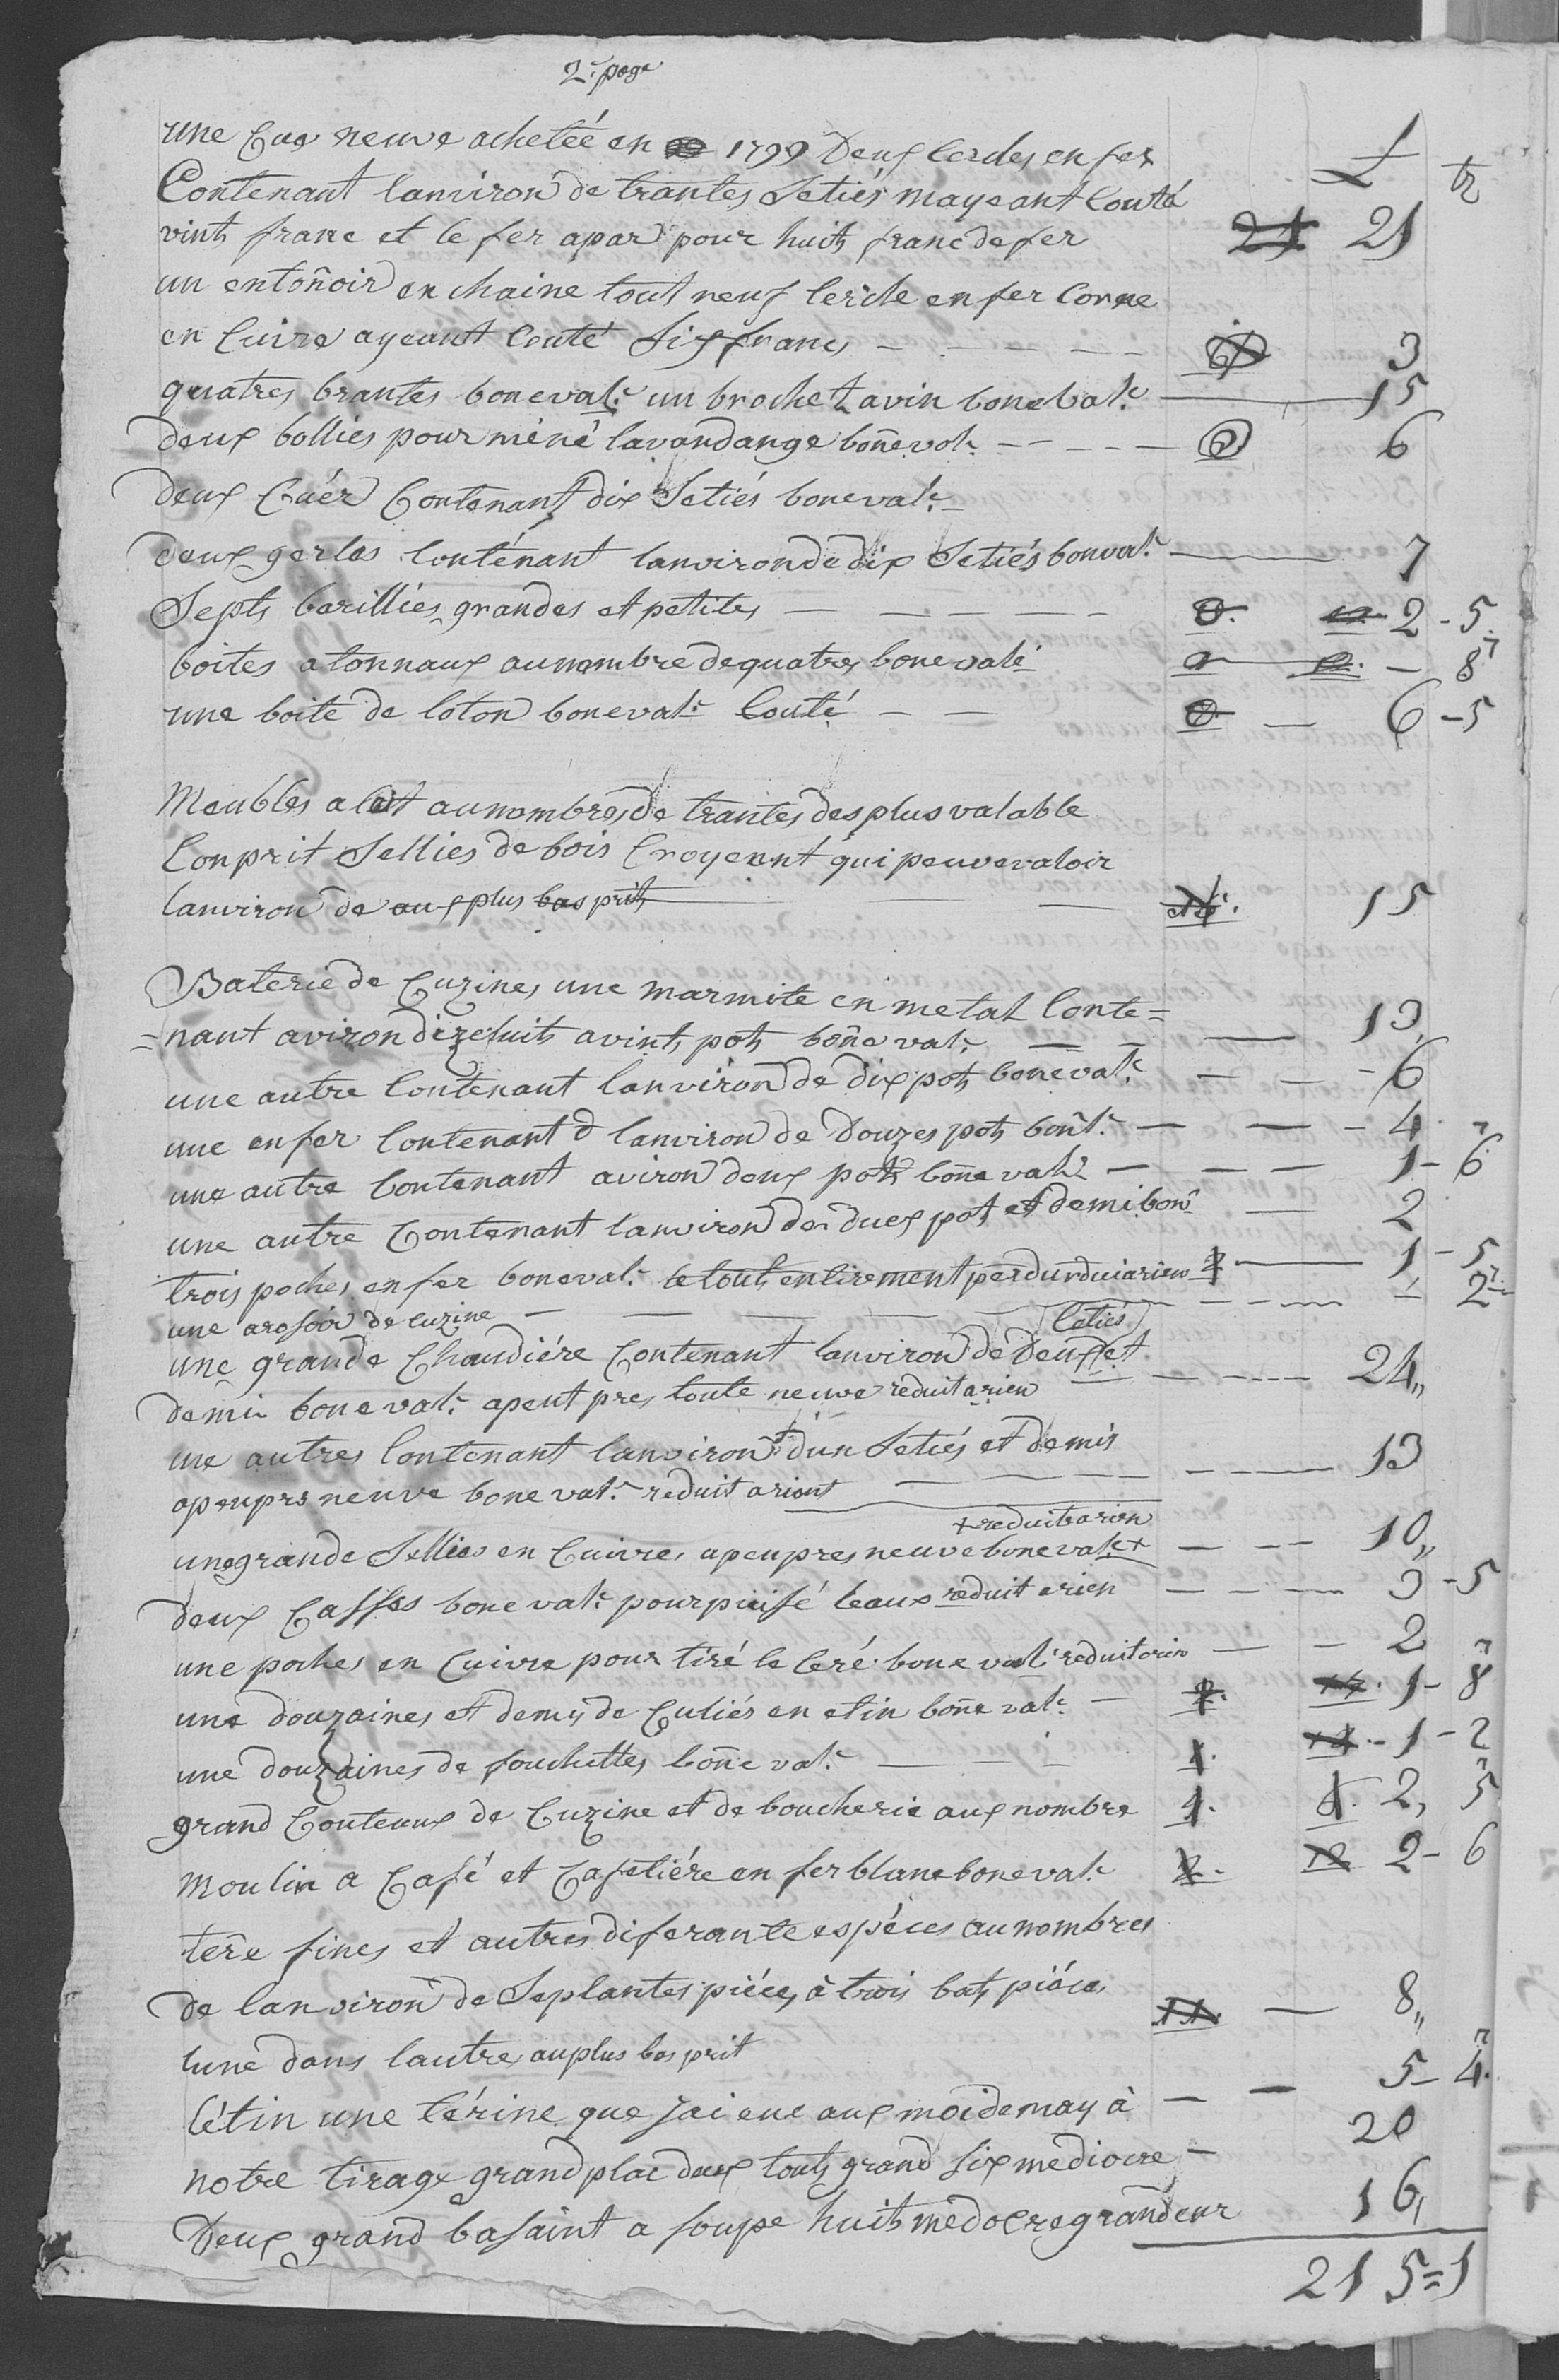 2.e page
une Cue neuve achetée en 1799 Deux Cercles en fer
£ tz
Contenant lanviron de trantes Setiés mayeant Couté
vints franc et le fer apar pour huits franc de fer 21 21
un entoñoir en chaine tout neuf Cercle en fer Corne
en Cuivre ayeant Couté Six francs — — — — 3
quatres brantes bone val.e un brochet avin bone val.e — 15
deux bollies pour mené lavandange boñe val.e — — — 6
Deux Cuér Contenant dix Setiés bone val.e
deux gerles Conténant lanviron de dix Setiés bon val.e — 7
Septs barillies grandes et petites — — — — 2 - 5
boites a tonnaux au nombre de quatres bone valé — 8
une boite de loton bone val.e Couté — — — 6 - 5
Meubles a au nombres de trantes des plus valable
Conprit Sellies de bois Croyeant qui peuve valoir
lanviron de aux plus bas prits — 15
Baterie de Cuzines une marmite en metal Conte=
=nant aviron dizehuits avints pots boñe val.e — — — 13
une autre Contenant lanviron de dix pots bone val.e — — - 6
une en fer Contenant lanviron de Douzes pots boñ.e — — - 4
une autre Contenant aviron deux pots boñe val.e — — — 1 - 6
une autre Contenant lanviron de dues pots et demi boñ — 2
trois poches en fer bone val.e le touts entirement perdu rduiarien — 1 - 5
une arosoir de cuzine — — — — — 2
Cetiés
une grande Chaudiére Contenant lanviron de Deux et
demi bone val.e apeut pres toute neuve reduit a rien — — — 24"
une autres Contenant lanviron d'un Setiés et demis
apeuprs neuve bone val.e reduit arient — — — 13
+ reduit a rien
une grande Sellies en Cuivres apeupres neuve bone val.e + — — 10"
deux Casses bone val.e pour puisé leaux reduit a rien — — — 3 - 5
une poches en Cuivre pour tiré le Ceré bone val.e reduit a rien — — 2
une douzaines et demys de Culiés en etin boñe val.e — 1 - 8
une douzaines de fouchettes boñe val.e — — 1 - 2
grand Couteaux de Cuzine et de boucherie aux nombre 4. 2, 5
Moulin a Café et Cafetiére en fer blanc bone val.e 2 - 6
tere fines et autres diferante espéces au nombres
de lanviron de Septantes piéces à trois bats piéces
— 8"
lune dans lautres au plus bas prit
Cétin une térine que jai eue aux moi de may à — — 5 - 4.
notre tirage grand plac deux touts grand Six mediocre — 20
Deux grand basaint a Soupe huits médocre grandeur 16,
215 = 1